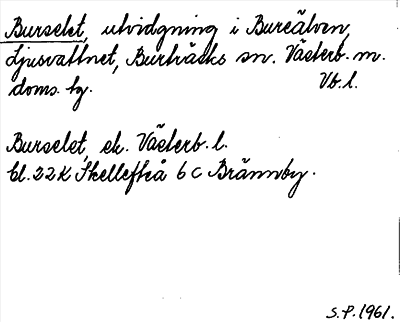 Burselet, utvidgning i Bureälven,
Ljusvattnet, Burträsks sn. Västerb. m.
doms. hg. Vb. l.
Burselet, ek. Västerb. l.
bl. 22K Skellefteå 6 C Brännby.
S.P. 1961.